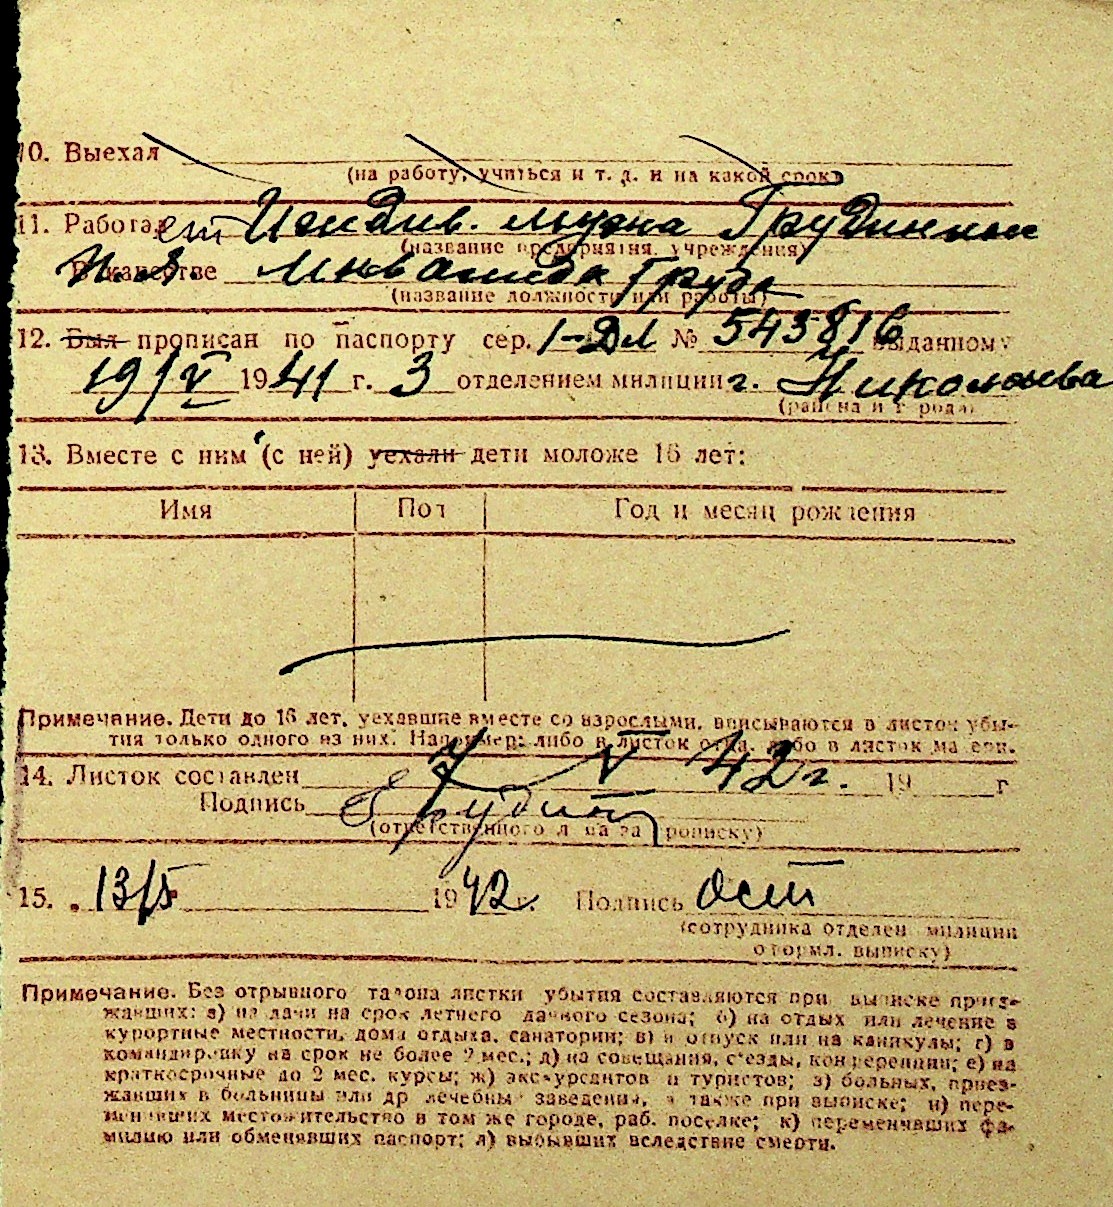 10. Выехал
(на работу, учиться и т. д. и на какой срок)
11. Работает Иждив. мужа Грудинин
(название предприятия, учреждения)
И. Я. Инвалида труда
В качестве
(название должности или работы)
12. Был прописан по паспорту сер. I-ДЛ № 543816 выданному
19/V 1941 г. 3 отделением милиции г. Николаева
(района и города)
13. Вместе с ним (с ней) уехали дети моложе 16 лет:
Имя Пол Год и месяц рождения
Примечание. Дети до 16 лет, уехавшие вместе со взрослыми, вписываются в листок убы-
тия только одного из них. Например: либо в листок отца, либо в листок матери.
14. Листок составлен 7 V 42 г. 19 г
Подпись
(ответственного лица за прописку)
15. 13/5 1942 г. Подпись
(сотрудника отделен. милиции
оформл. выписку)
Примечание. Без отрывного талона листки убытия составляются при выписке приез-
жавших: а) на дачи на срок летнего дачного сезона; б) на отдых или лечение в
курортные местности, дома отдыха, санатории; в) в отпуск или на каникулы; г) в
командировку на срок не более 2 мес.; д) на совещания, съезды, конференции; е) на
краткосрочные до 2 мес. курсы; ж) экскурсантов и туристов; з) больных, приез-
жавших в больницы или др лечебны заведения, а также при выписке; и) пере-
менивших местожительство в том же городе, раб. поселке; к) переменивших фа-
милию или обменявших паспорт; л) выбывших вследствие смерти.